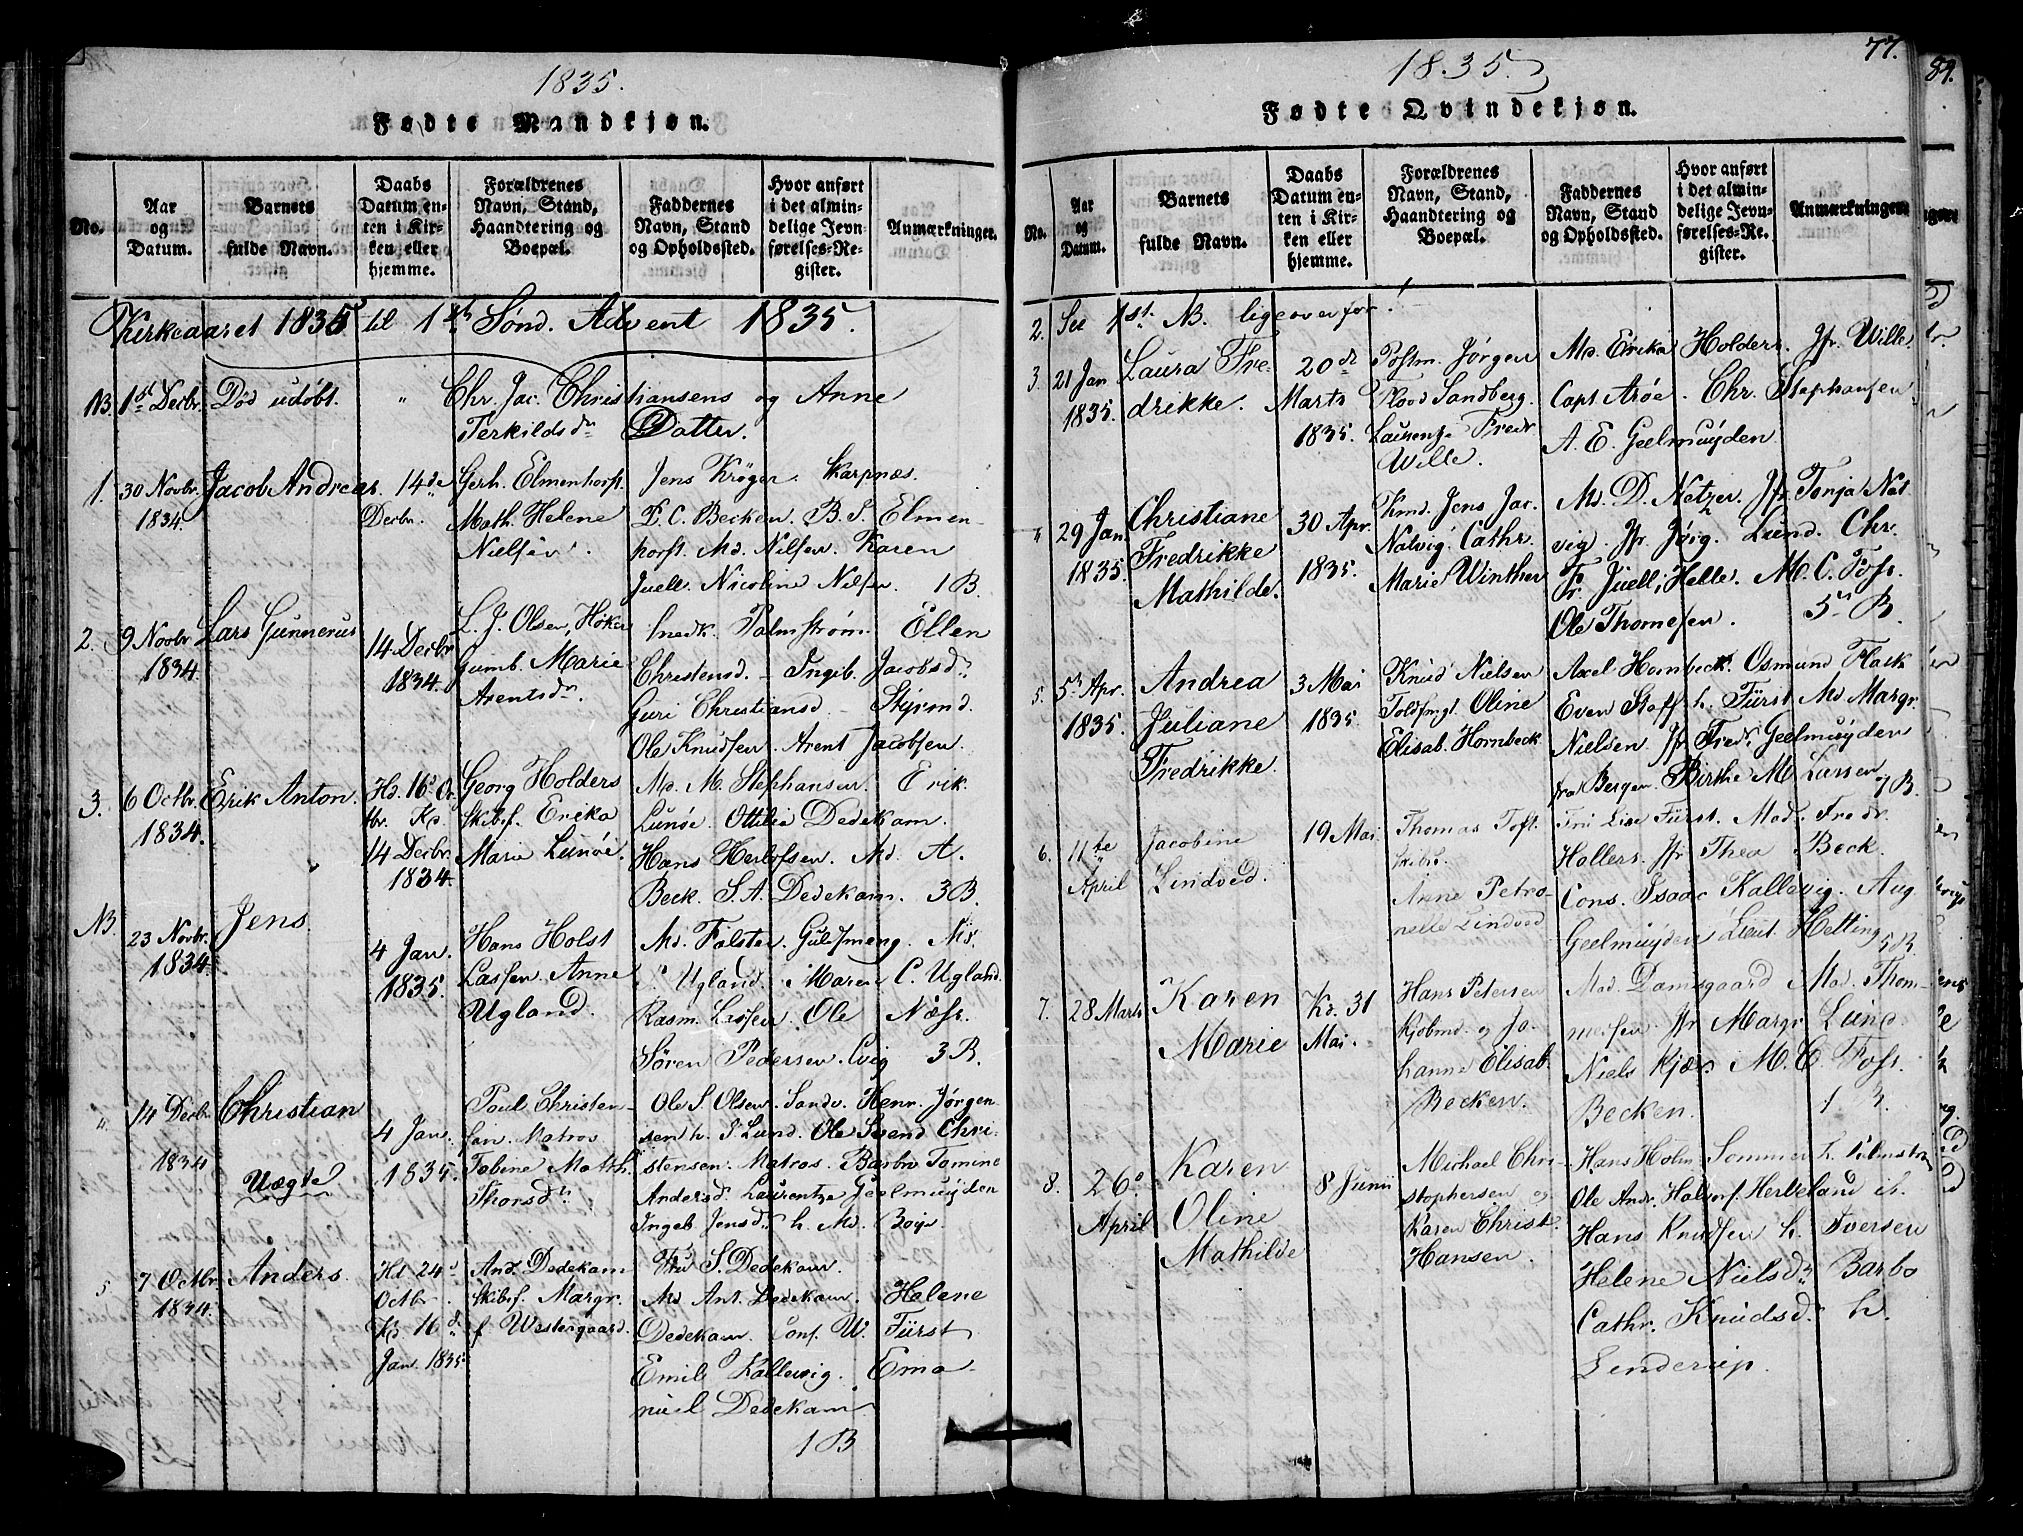 1835.
Fødte Mandkjøn.
No.
Aar
og
Datum.
Barnets
fulde Navn.
Daabs
Datum en-
ten i Kir-
ken eller
hjemme.
Forældrenes
Navn, Stand,
Haandtering og
Boepæl.
Faddernes
Navn, Stand
og Opholdssted.
Hvor anført
i det almin-
delige Jevn-
førelses-Re-
gister.
Anmærkninger.
Kirkeaaret 1835 til 1ste Sønd. Advent 1835.
NB. 1st Decbr. Død udøbt. " Chr. Jac. Christiansens og Anne
Terkildsdr Datter.
1. 30 Novbr.
1834.
Jacob Andreas.
14de
Decbr.
Gerh. Elmenhorst.
Math. Helene
Nielsen.
Jens Krøger. Skarpnæs.
P. C. Becken. B. S. Elmen-
horst. Md. Nilsen. Karen
Juell. Nicoline Nilsen. 1 B.
2. 9 Novbr
1834.
Lars Gunnerus
14 Decbr
1834.
L. J. Olsen, Høker
Gunb. Marie
Arentsdr.
Palmstrøm. Ellen
Christensd. - Ingeb. Jacobsdr.
Guri Christiansd - Styrmd.
Ole Knudsen. Arent Jacobsen.
3. 6 Octbr.
1834.
Erik Anton.
Hd. 16d Oc
tbr. Kd.
14 Decbr.
1834.
Georg Holders
skibsf. Erika
Marie Lunøe.
Md. M. Stephansen. Erik
Lunøe. Ottilia Dedekam.
Hans Herlofsen. Md. A.
Beck. S. A. Dedekam. 3 B.
NB. 23 Novbr.
1834.
Jens.
4 Jan.
1835.
Hans Holst
Lassen. Anne
Ugland.
Md. Falster. Guldsmeng. Md.
Ugland. Maren C. Ugland.
Rasm. Lassen. Ole Næss.
Sören Pedersen. 3 B.
4. 14 Decbr
1834
Christian
Uægte
4 Jan.
1835.
Poul Christen-
sen. Matros
Tobine Math.
Thorsdr.
Ole S. Olsen. Sandv. Henr. Jørgen
sen h. S. Lund. Ole Svend Chri-
stensen. Matros. Barbro Tomine
Andersd. Laurentze Geelmuyden
Ingeb. Jensdr. h. Md. Boije.
5 7 Octbr.
1834.
Anders.
Hd 24d
Octbr.
Kd 16d
Jan. 1835.
And. Dedekam
skibsf. Margr.
f. Westergaard.
Fru S. Dedekam.
Md Ant. Dedekam. Helene
Dedekam. Cons. W. Fürst
Emil Kallevig. Ema-
nuel Dedekam.
1 B
77.
84.
18.35.
Fødte Qvindekjøn.
No.
Aar
og
Datum.
Barnets
fulde Navn.
Daabs
Datum en-
ten i Kir-
ken eller
hjemme.
Forældrenes
Navn, Stand,
Haandtering og
Boepæl.
Faddernes
Navn, Stand
og Opholdssted.
Hvor anført
i det almin-
delige Jevn-
førelses-Re-
gister.
Anmærkninger.
2. See 1st. NB. ligeoverfor!
3. 21 Jan
1835.
Laura Fre-
drikke.
20de
Marts
1835.
Postm. Jørgen
Flood Sandberg.
Laurentze Fredr
Wille.
Md. Erika Holders. Jfr. Wille.
Capt Arøe. Chr. Stephansen
A. E. Geelmuyden
4 29 Jan.
1835.
Christiane
Fredrikke
Mathilde.
30 Apr.
1835.
Kmd. Jens Jac.
Natvig. Cathr
Marie Winther
Md. D. Netzer. Jfr. Tonja Nat
vig. Jfr. Jørg. Lund. Chr.
Fr. Juell. Helle. M. C. Foss.
Ole Thomesen. 5 B.
5. 5te Apr.
1835.
Andrea
Juliane
Fredrikke.
3 Mai
1835.
Knud Nielsen
Toldsmgt Oline
Elisab. Hornbeck
Axel Hornbeck. Osmund Flack
Even Staff h. Fürst Md Margr.
Nielsen. Jfr Fredr. Geelmuyden
fra Bergen. Birthe M. Lassen
7 B.
6. 11te
April
Jacobine
Lindved.
19 Mai
Thomas Toft
skibs.
Anne Petro-
nelle Lindved
Fru Lise Fürst. Mad. Fredr.
Hollers. Jfr Thea Beck.
Cons. Isaac Kallevig. Aug
Geelmuyden Lieut. Hetting
5 B
7. 28 Marts
Karen
Marie
Kd. 31
Mai.
Hans Petersen
Kjobmd. og Jo-
hanne Elisab.
Becken.
Mad. Damsgaard Mad. Thom-
mesen. Jfr Margr Lund
Niels Kjær M. C. Foss.
Becken. 1 B.
8. 26d
April
Karen
Oline
Mathilde
8 Junii
Michael Chri-
stophersen og
Karen Christ.
Hansen.
Hans Holm Sommer h. Palmstrøm
Ole Andr. Halvors. Herbeland ib.
Hans Knudsen h. Iversen
Helene Nielsdr. Barbo
Cathr. Knudsd. h.
Lenderup.